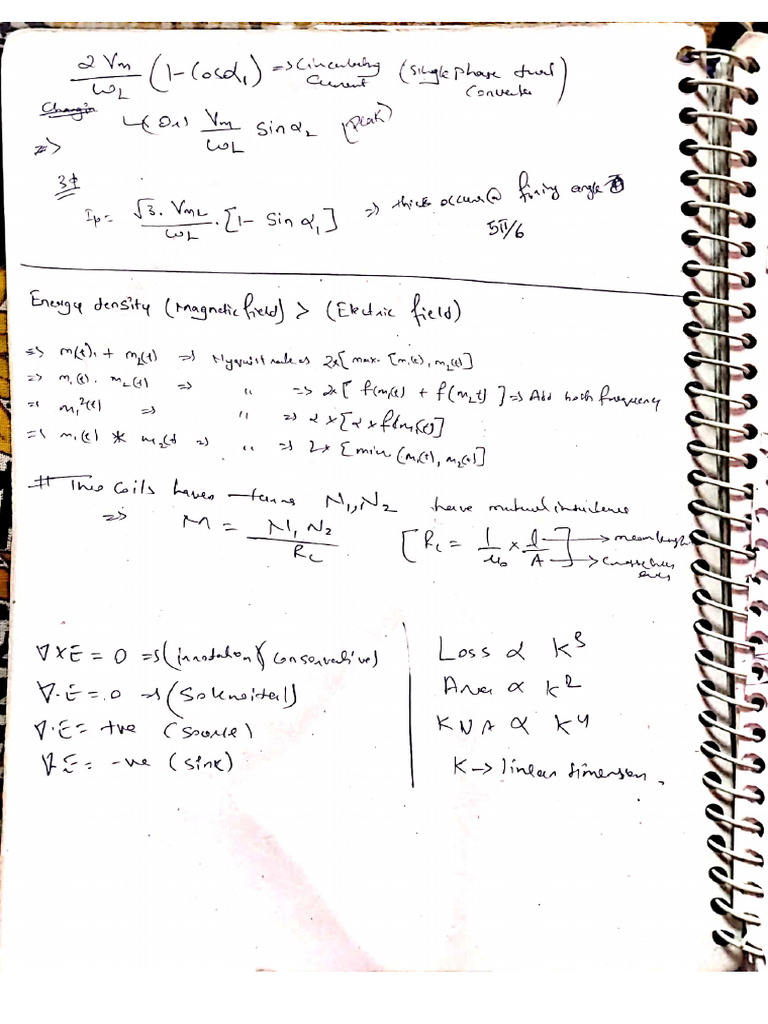 2 Vm / ωL (1 - Cosα1) => Circulating Current (Single phase dual Converter)
↳ (or) Vm / ωL Sinα2 (Peak)
=>
3ϕ
Ip = √3 . VmL / ωL . [1 - Sin α1] => occurs @ firing angle
5π/6
Energy density (Magnetic field) > (Electric field)
=> m1(t) + m2(t) => Nyquist rate is 2x[max. [m1(t), m2(t)]
=> m1(t) . m2(t) => " => 2x[ f(m1(t) + f(m2t) ] => Add both frequency
=> m1²(t) => " => 2 x [2 x f(m1(t)]
=> m1(t) * m2(t) => " => 2x [min (m1(t), m2(t)]
# Two Coils having turns N1, N2 have mutual inductance
=> M = N1, N2 / RL [RL = 1/μ0 x l/A] → mean length
∇ x E = 0 => (irrotational) (conservative)
∇ . E = 0 => (Solenoidal)
∇ . E = +ve (source)
∇ E = -ve (sink)
Loss α K³
Area α K²
KVA α K⁴
K → linear dimension.